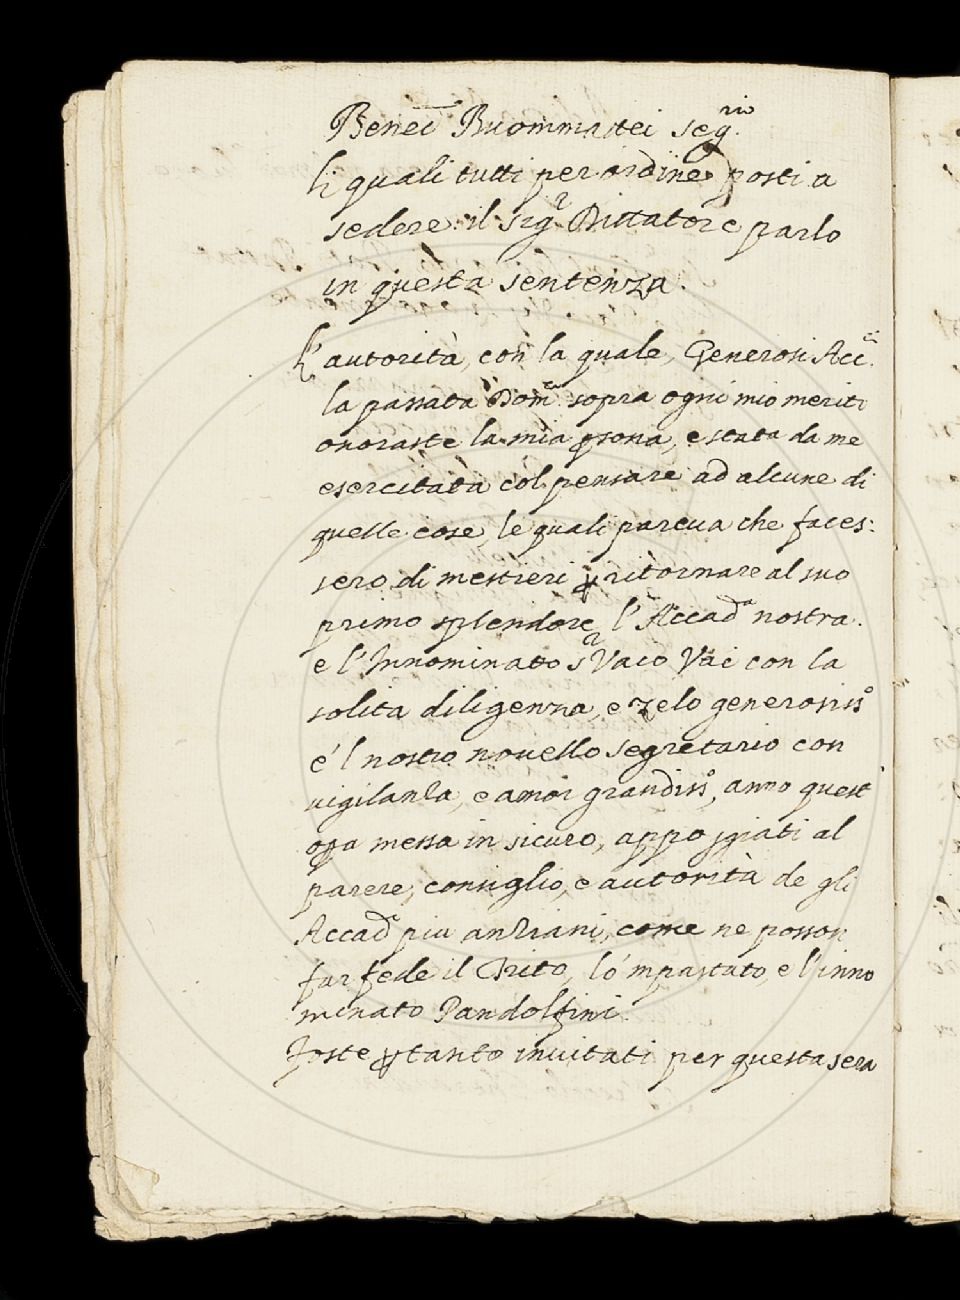 Bened Buommattei seg.rio
li quali tutti per ordine posti a
sedere il sig.r Dittatore parlo
in questa sentenza.
L'autorità, con la quale, Generosi Acc.ci
la passata Dom.ca sopra ogni mio merito
onoraste la mia ꝑsona, e stata da me
esercitata col pensare ad alcune di
quelle cose, le quali pareva che faces:
sero di mestieri ꝑ ritornare al suo
primo splendore l'Accad.a nostra.
e l'Innominato s.r Vaio Vai con la
solita diligenza, e zelo generosiss.o
e 'l nostro novello segretario con
vigilanza, e amor grandiss.o, anno quest'
oꝑa messa in sicuro, appoggiati al
parere, consiglio, e autorità de gli
Accad.ci piu anziani, come ne posson
far fede il Trito, lo 'mpastato, e l'inno
minato Pandolfini.
Foste ꝑtanto invitati per questa sera